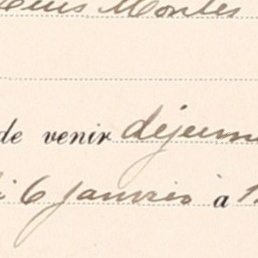 Montes
de venir déjeun
6 janvier à 1